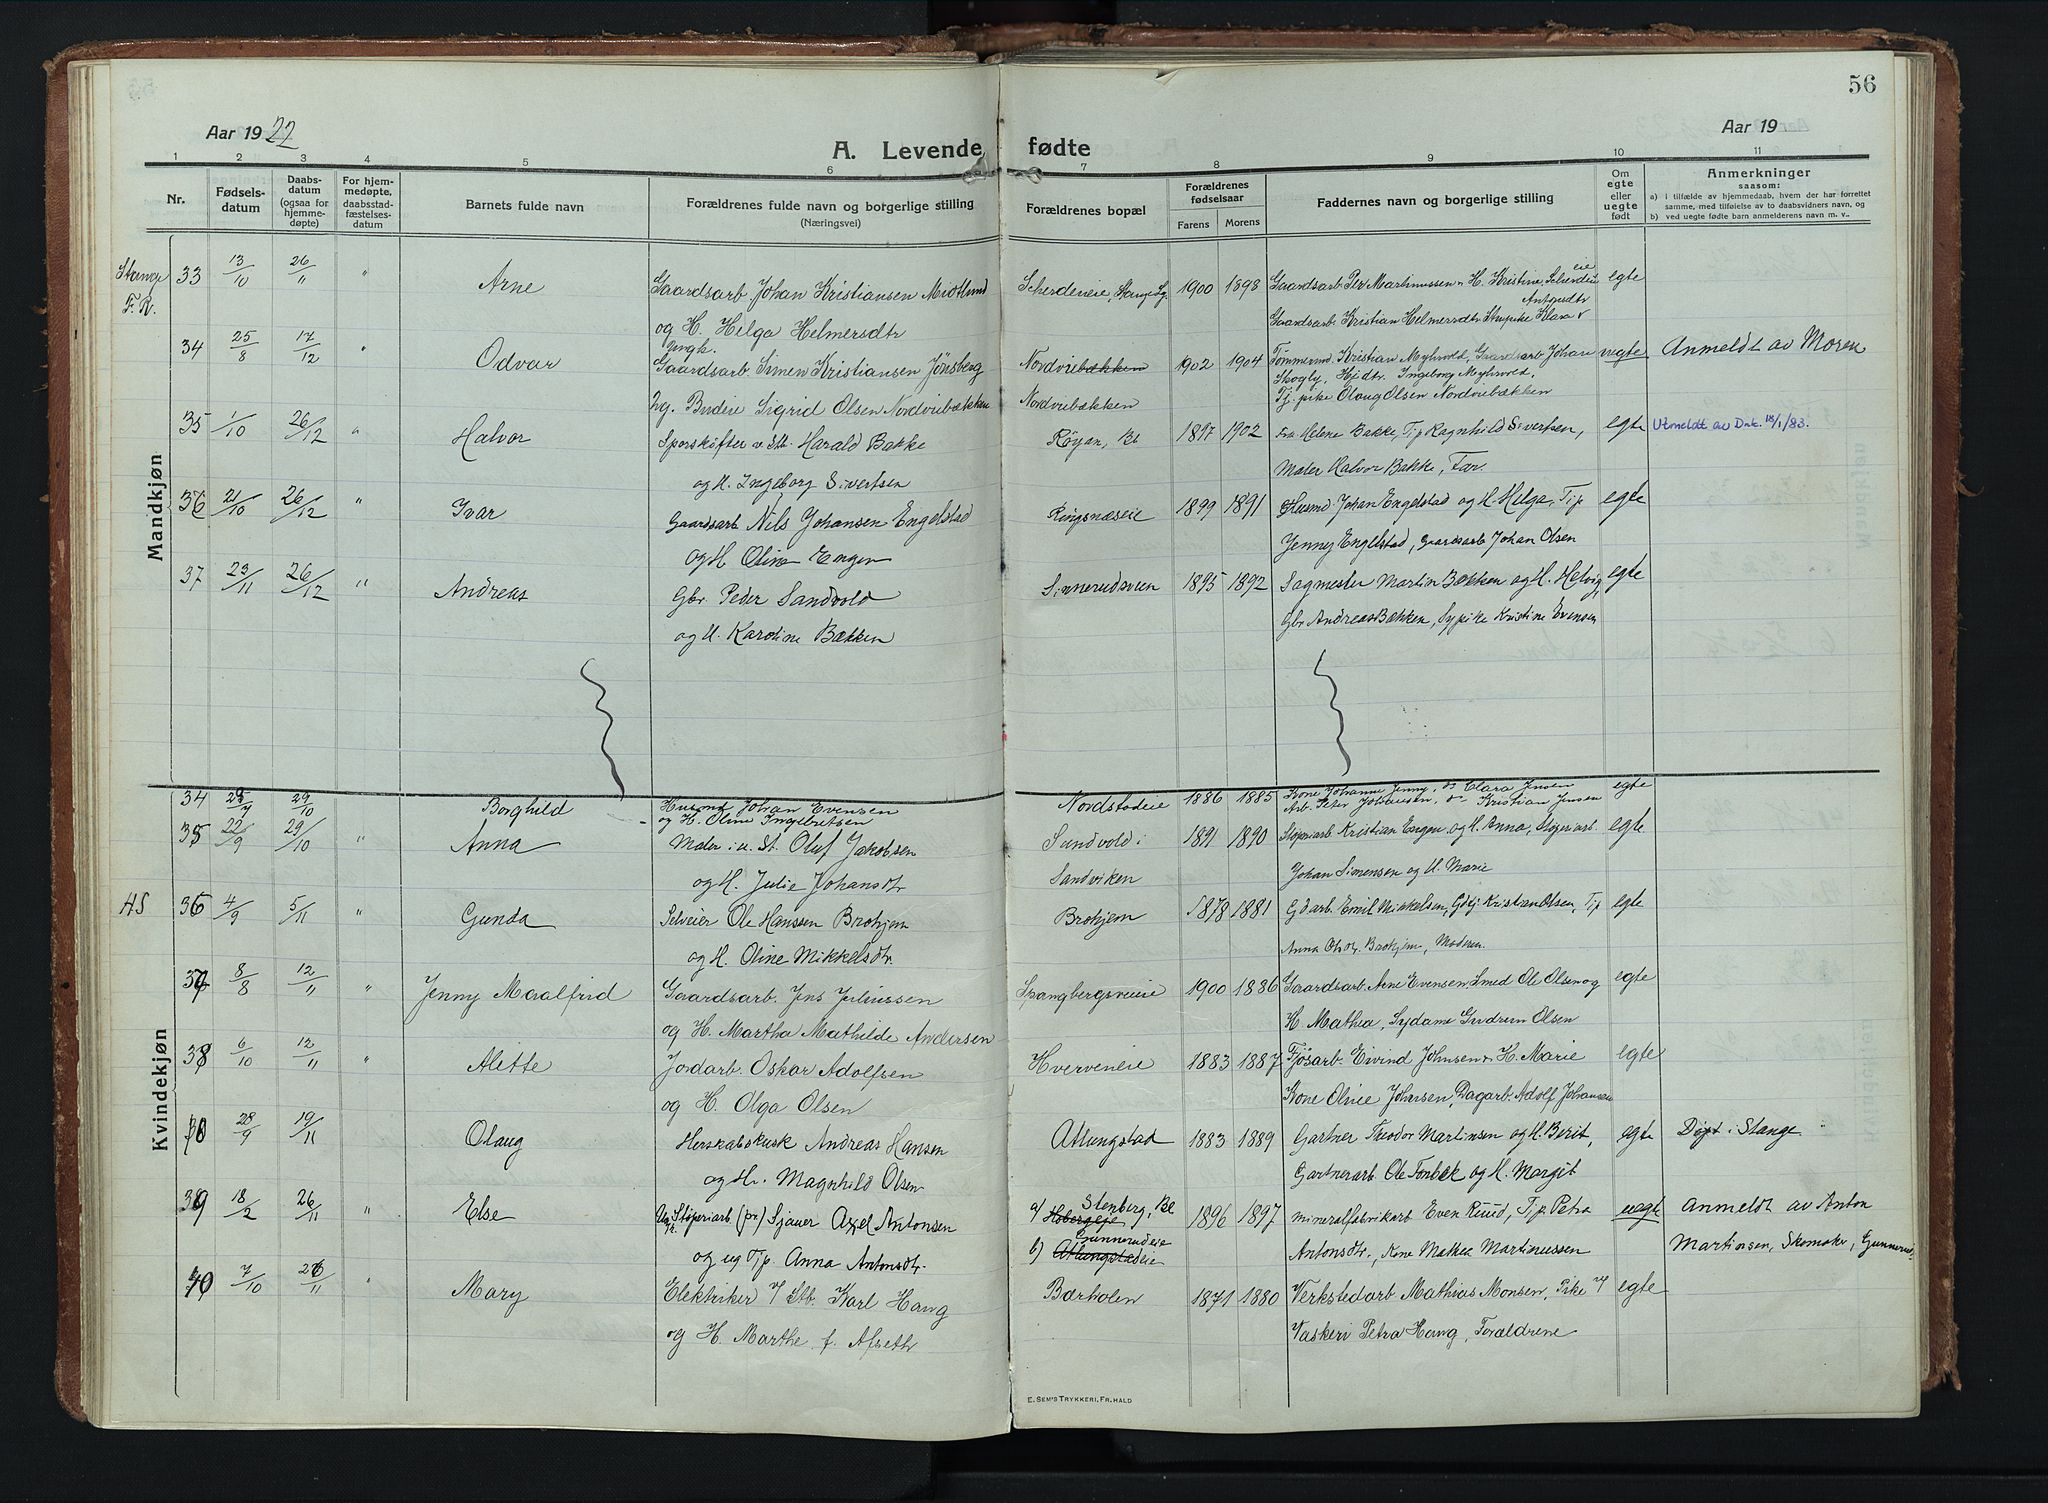 56
Aar 1922
A. Levende fødte
Aar 19
1 2 3 4 5 6 7 8 9 10 11
Nr.
Fødsels-
datum
Daabs-
datum
(ogsaa for
hjemme-
døpte)
For hjem-
medøpte,
daabsstad-
fæstelses-
datum
Barnets fulde navn
Forældrenes fulde navn og borgerlige stilling
(Næringsvei)
Forældrenes bopæl
Forældrenes
fødselsaar
Farens Morens
Faddernes navn og borgerlige stilling
Om
egte
eller
uegte
født
Anmerkninger
saasom:
a) i tilfælde av hjemmedaab, hvem der har forrettet
samme, med tilføielse av to daabsvidners navn, og
b) ved uegte fødte barn anmelderens navn m. v.
Mandkjøn
Stange 33 13/10 26/11 " Arne Gaardsarb. Johan Kristiansen Midtlund 1900 1898 Gaardsarb. Per Martinussen H. Kristine egte
F.K. og H. Helga Helmersdtr Gaardsarb. Kristian
34 25/8 17/12 " Odvar Gaardsarb. Simen Kristiansen Jønsberg Nordviebækken 1902 1904 Kristian Myhvold, Gaardsarb Johan uegte Anmeldt av Moren
Skogly, Ingeborg Myhvold,
ug. Budeie Sigrid Olsen Nordviebækken Nordviebækken Tj. pike Olaug Olsen Nordviebækken
35 1/10 26/12 " Halvor Sporskifter v. Stb. Harald Bakke Røyan, Bl 1897 1902 Fru Helene Bakke, Tjp Ragnhild Sivertsen, egte Utmeldt av Dnk. /1/83.
og H. Ingeborg Sivertsen Maler Halvor Bakke, Far.
36 21/10 26/12 " Ivar Gaardsarb Nils Johansen Engelstad Ringnæseie 1899 1891 Husmd Johan Engelstad og H. Helga, Tjp egte
og H. Oline Engen Jenny Engelstad, Gaardsarb Johan Olsen
37 23/11 26/12 " Andreas Gbr. Peder Sandvold 1895 1892 Sagmester Martin Bækken og H. Helvig, egte
og H. Karoline Bækken Gbr Andreas Bækken, Sypike Kristine Evensen
Kvindekjøn
34 29/10 Borghild Husmd Johan Evensen Nordstadeie 1886 1885 Kone Johanne Jenny, do Clara Jensen egte
og H. Oline Ingebretsen Arb. Peter Johansen, do Kristian Jensen
35 22/9 29/10 " Anna Maler i u. St. Oluf Jakobsen Sundvold i 1891 1890 Støperiarb Kristian Engen og H. Anna, Støperiarb. egte
og H. Julie Johansdtr Sandviken Johan Simensen og H. Marie
HS 36 4/9 5/11 " Gunda Selveier Ole Hanssen Brohjem Brohjem 1878 1881 Gdarb. Emil Mikkelsen, Gdej Kristian Olsen, Tjp egte
og H. Oline Mikkelsdtr. Anna Olsdtr. Brohjem, Moderen.
37 8/8 12/11 " Jenny Maalfrid Gaardsarb. Jens Juliussen Spangbergsveieie 1900 1886 Gaardsarb. Arne Evensen, Smed Ole Olsen og egte
og H. Martha Mathilde Andersen H. Mathea, Sydame Gudrun Olsen
38 6/10 12/11 " Alette Jordarb. Oskar Adolfsen Hverveneie 1883 1887 Fjøsarb. Eivind Johnsen H. Marie egte
og H. Olga Olsen Kone Oline Johnsen, Dagarb. Adolf Johansen
28/9 19/11 Olaug Herskabskusk Andreas Hansen Atlungstad 1883 1889 Gartner Theodor Martinsen og H. Berit, egte Døpt i Stange
og H. Magnhild Olsen Gartnerarb Ole Fonbæk og H. Margit
39 18/2 26/11 " Else Ug. Støperiarb (pr.) Sjauer Axel Antonsen a) Hobergeie Stenberg, Bl 1896 1897 Mineralfabrikarb Even Ruud, Tjp Petra uegte Anmeldt av Anton
og ug Tjp. Anna Antonsdtr. b) Atlungstadeie Gunnerudeie Antonsdtr., Kone Mathea Martinussen Martinsen, Skomaker, Gunnerud
40 7/10 26/11 " Mary Elektriker v/ Stb. Karl Haug Bærholen 1871 1880 Verkstedarb Mathias Monsen, Pike v/ egte
og H. Marthe f. Afseth Vaskeri Petra Haug, Forældrene
E. SEM'S TRYKKERI, FR.HALD